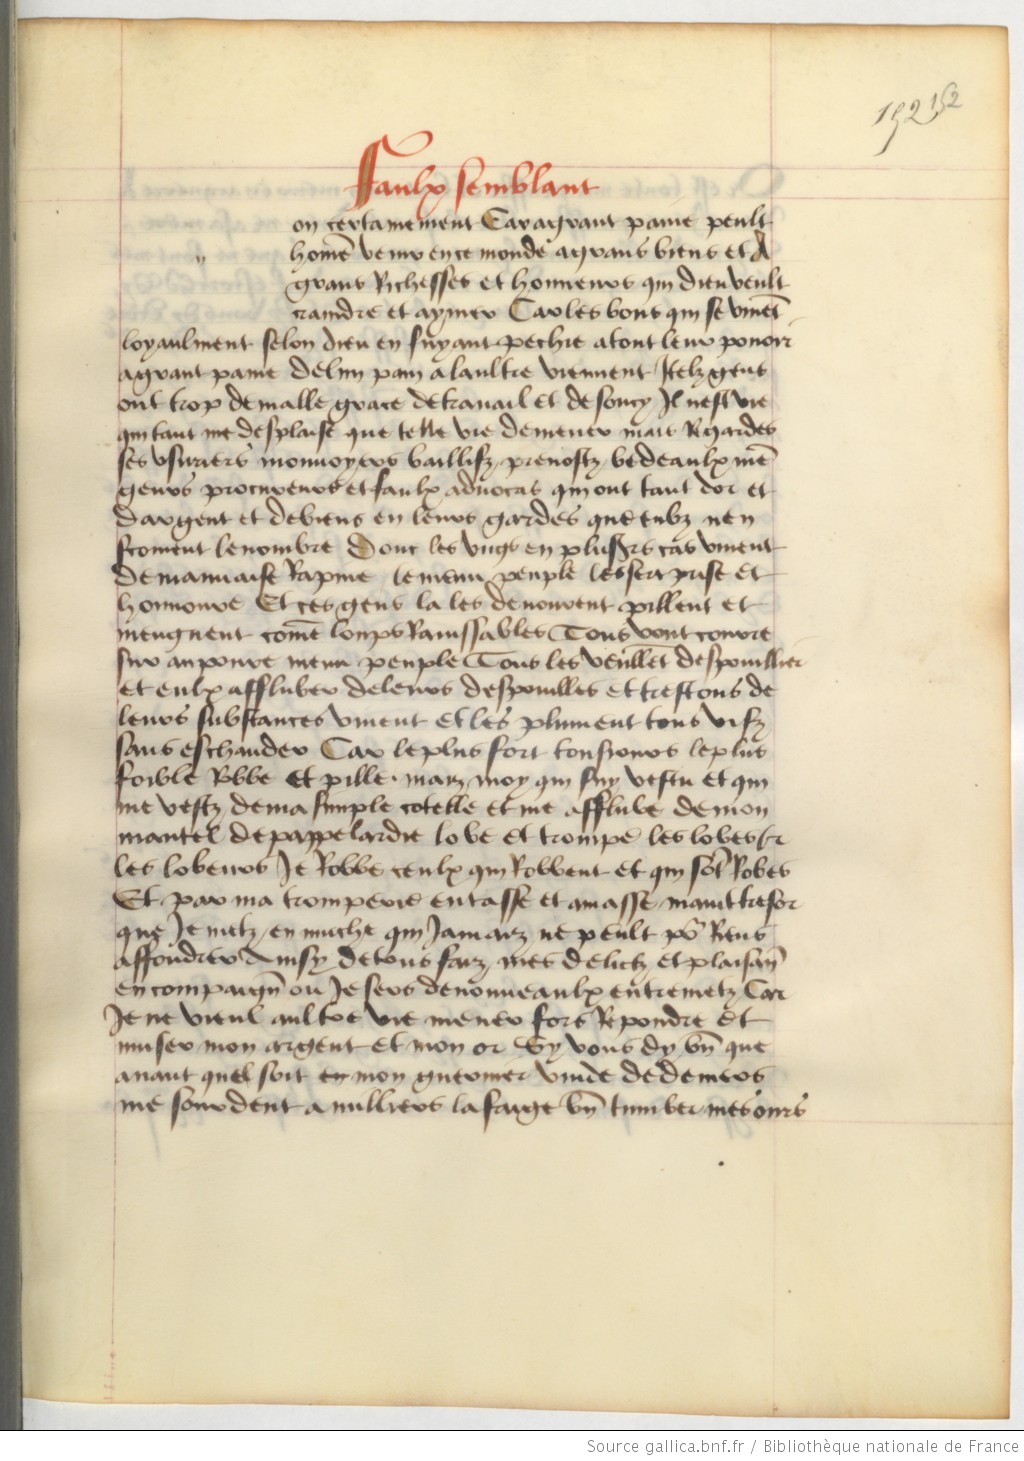 152 152
Faulx semblant
on certainement Car agrant paine peult
home venir en ce monde agrans biens et A
"
grans Richesses et honneurs qui dieu veult
craindre et aymer Car les bons qui se vivet
loyaulment selon dieu en fuyant pechie a tout leur povoir
agrant paine delun pain alaultre viennent Itelz gens
ont trop de malle grace de travail et de soucy Il nest vie
qui tant me desplaise que telle vie demener mais Regardes
ses usuriers monnoyers baillifz prevostz bedeaulx me
geurs procureurs et faulx advocas qui ont tant dor et
dargent et de biens en leurs gardes que eulx nen
scevent le nombre Donc les ungs en plusrs cas vivent
de mauvaise Rapine le menu peuple les sert prise et
honnoure Et ces gens la les devourent pillent et
mengueent come loups Ravissables Tous vont courre
sur au povre menu peuple Tous les veullet despouillier
et eulx affluber de leurs despouilles et trestous de
leurs substances vivent et les plument tous vifz
sans eschauder Car le plus fort tousjours le plus
foible Robbe et pille. maiz moy qui suy vestu et qui
me vestz de ma simple cotelle et me afflube de mon
mantel de pappelardie lobe et trompe les lobes et
les lobeurs Je Robbe ceulx qui Robbent et qui sot Robes
Et par ma tromperie entasse et amasse maint tresor
que Je metz en muche qui Jamaiz ne peult po Riens
affondrer Ainsy de tous faiz mes delictz et plaisan
en compaign ou Je sers de nouveaulx entremetz Car
Je ne vieul aultre vie mener fors Repondre et
muser mon argent et mon or Sy vous dy bn que
avant quel soit en mon guermer vuide de deniers
me sourdent a milliers la faige bn tumber mes ours
Source gallica.bnf.fr / Bibliothèque nationale de France